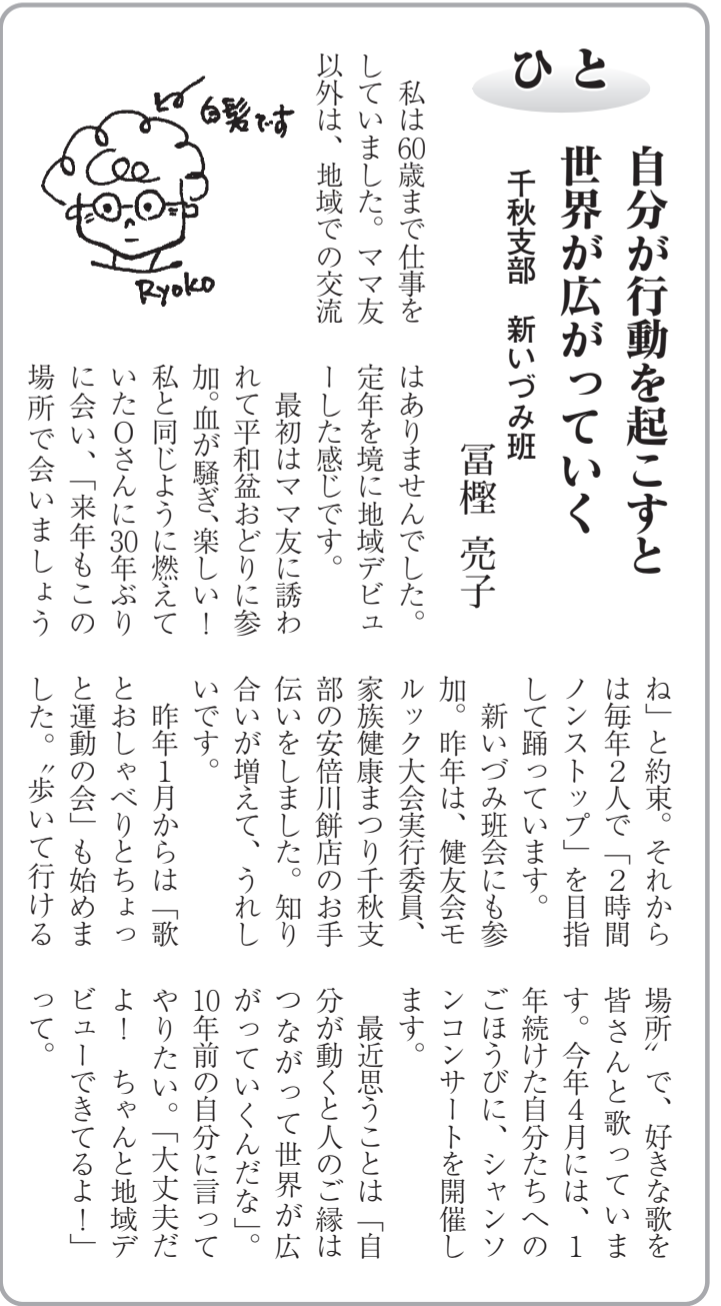 ひと
自分が行動を起こすと
世界が広がっていく
千秋支部　新いづみ班
冨樫 亮子
白髪です
Ryoko
　私は60歳まで仕事を
していました。ママ友
以外は、地域での交流
はありませんでした。
定年を境に地域デビュ
ーした感じです。
　最初はママ友に誘わ
れて平和盆おどりに参
加。血が騒ぎ、楽しい！
私と同じように燃えて
いたOさんに30年ぶり
に会い、「来年もこの
場所で会いましょう
ね」と約束。それから
は毎年2人で「2時間
ノンストップ」を目指
して踊っています。
　新いづみ班会にも参
加。昨年は、健友会モ
ルック大会実行委員、
家族健康まつり千秋支
部の安倍川餅店のお手
伝いをしました。知り
合いが増えて、うれし
いです。
　昨年1月からは「歌
とおしゃべりとちょっ
と運動の会」も始めま
した。〝歩いて行ける
場所〟で、好きな歌を
皆さんと歌っていま
す。今年4月には、1
年続けた自分たちへの
ごほうびに、シャンソ
ンコンサートを開催し
ます。
　最近思うことは「自
分が動くと人のご縁は
つながって世界が広
がっていくんだな」。
10年前の自分に言って
やりたい。「大丈夫だ
よ！　ちゃんと地域デ
ビューできてるよ！」
って。